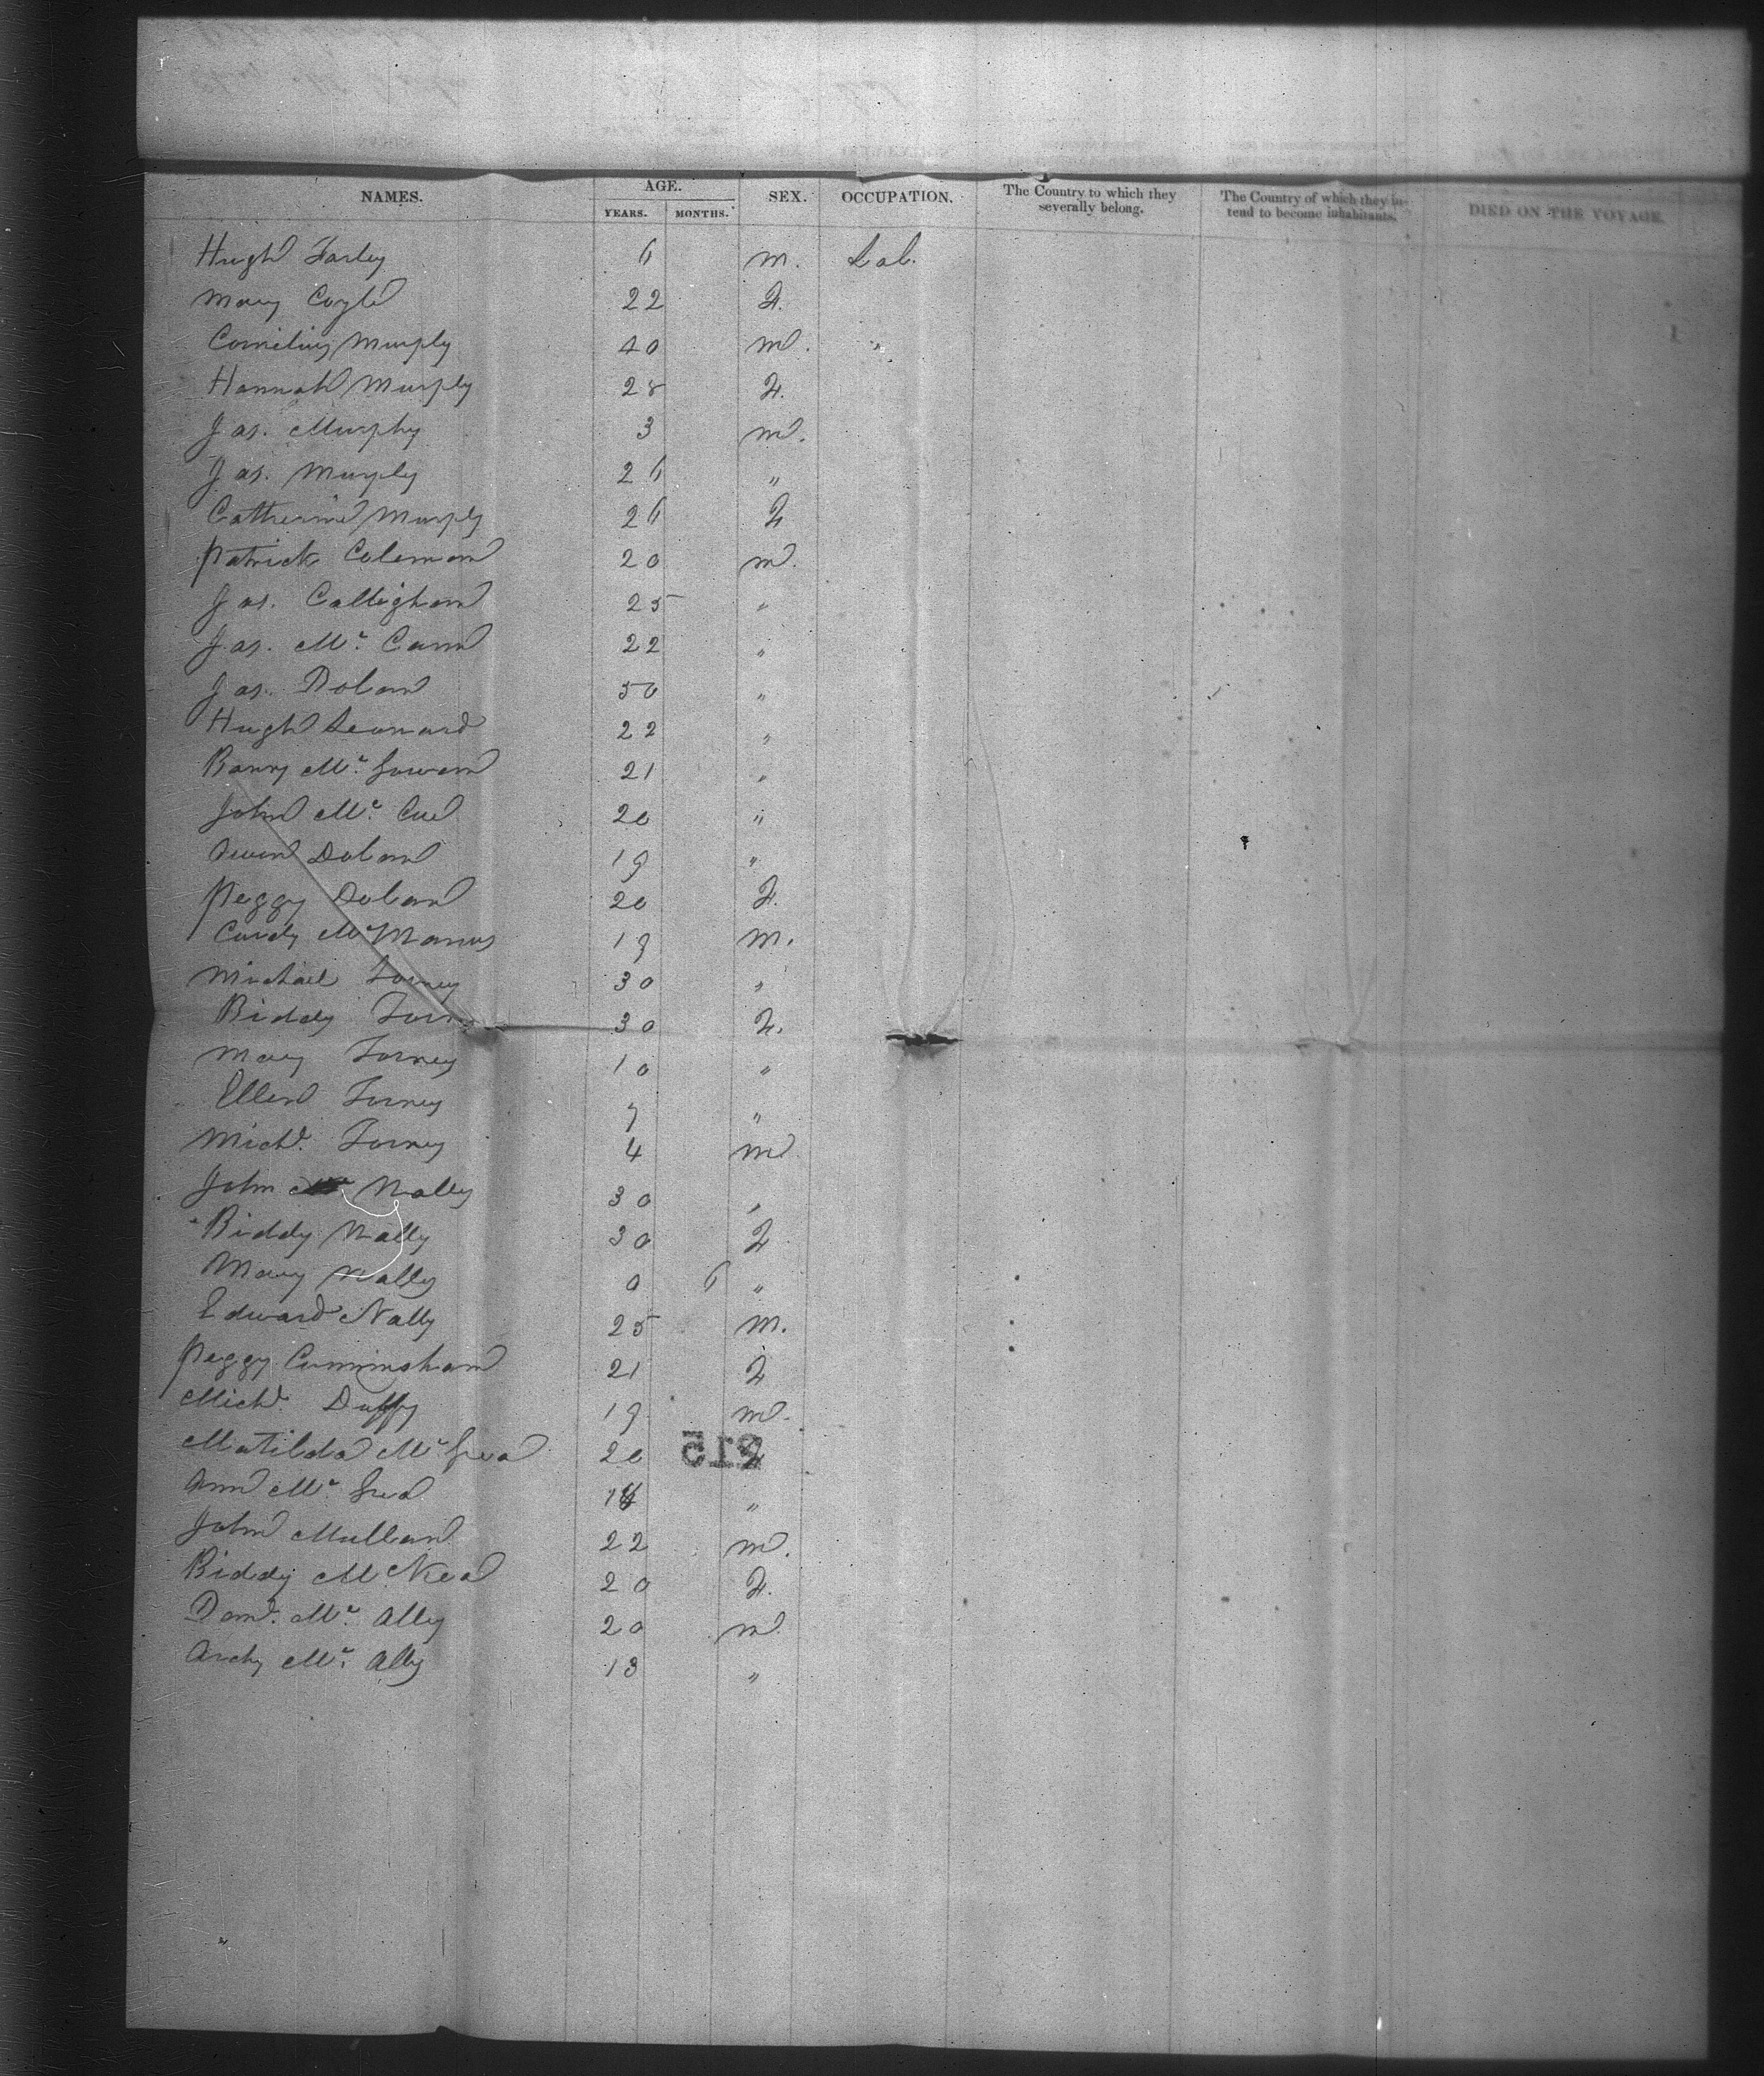 NAMES. AGE. SEX. OCCUPATION. The Country to which they severally belong. The Country of which they intend to become inhabitants. DIED ON THE VOYAGE.
YEARS. MONTHS.
Hugh Farley 6 m. Lab.
Mary Coyle 22 F.
Cornelius Murphy 40 m. "
Hannah Murphy 28 F.
Jas. Murphy 3 m.
Jas. Murphy 26 "
Catherine Murphy 26 F
Patrick Coleman 20 m.
Jas. Calligham 25 "
Jas. Mc. Cann 22 "
Jas. Dolan 50 "
Hugh Leonard 22 "
Barny Mc. Gowan 21 "
John Mc. Cue 20 "
Owen Dolan 19 "
Peggy Dolan 20 F.
Condy Mc Manus 19 m.
Michael Forney 30 "
Biddy 30 F.
Mary Forney 10 "
Ellen Forney 7 "
Michl. Forney 4 m
John Nally 30 "
Biddy Nally 30 F
Mary Nally 0 6 "
Edward Nally 25 m.
Peggy Cunningham 21 F
Michl. Duffy 19 m.
Matilda Mc 20 F
215
Ann Mc. "
John Mullan 22 m.
Biddy Mc 20 F.
Danl. Mc. Ally 20 m.
Archy Mc. Ally 13 "